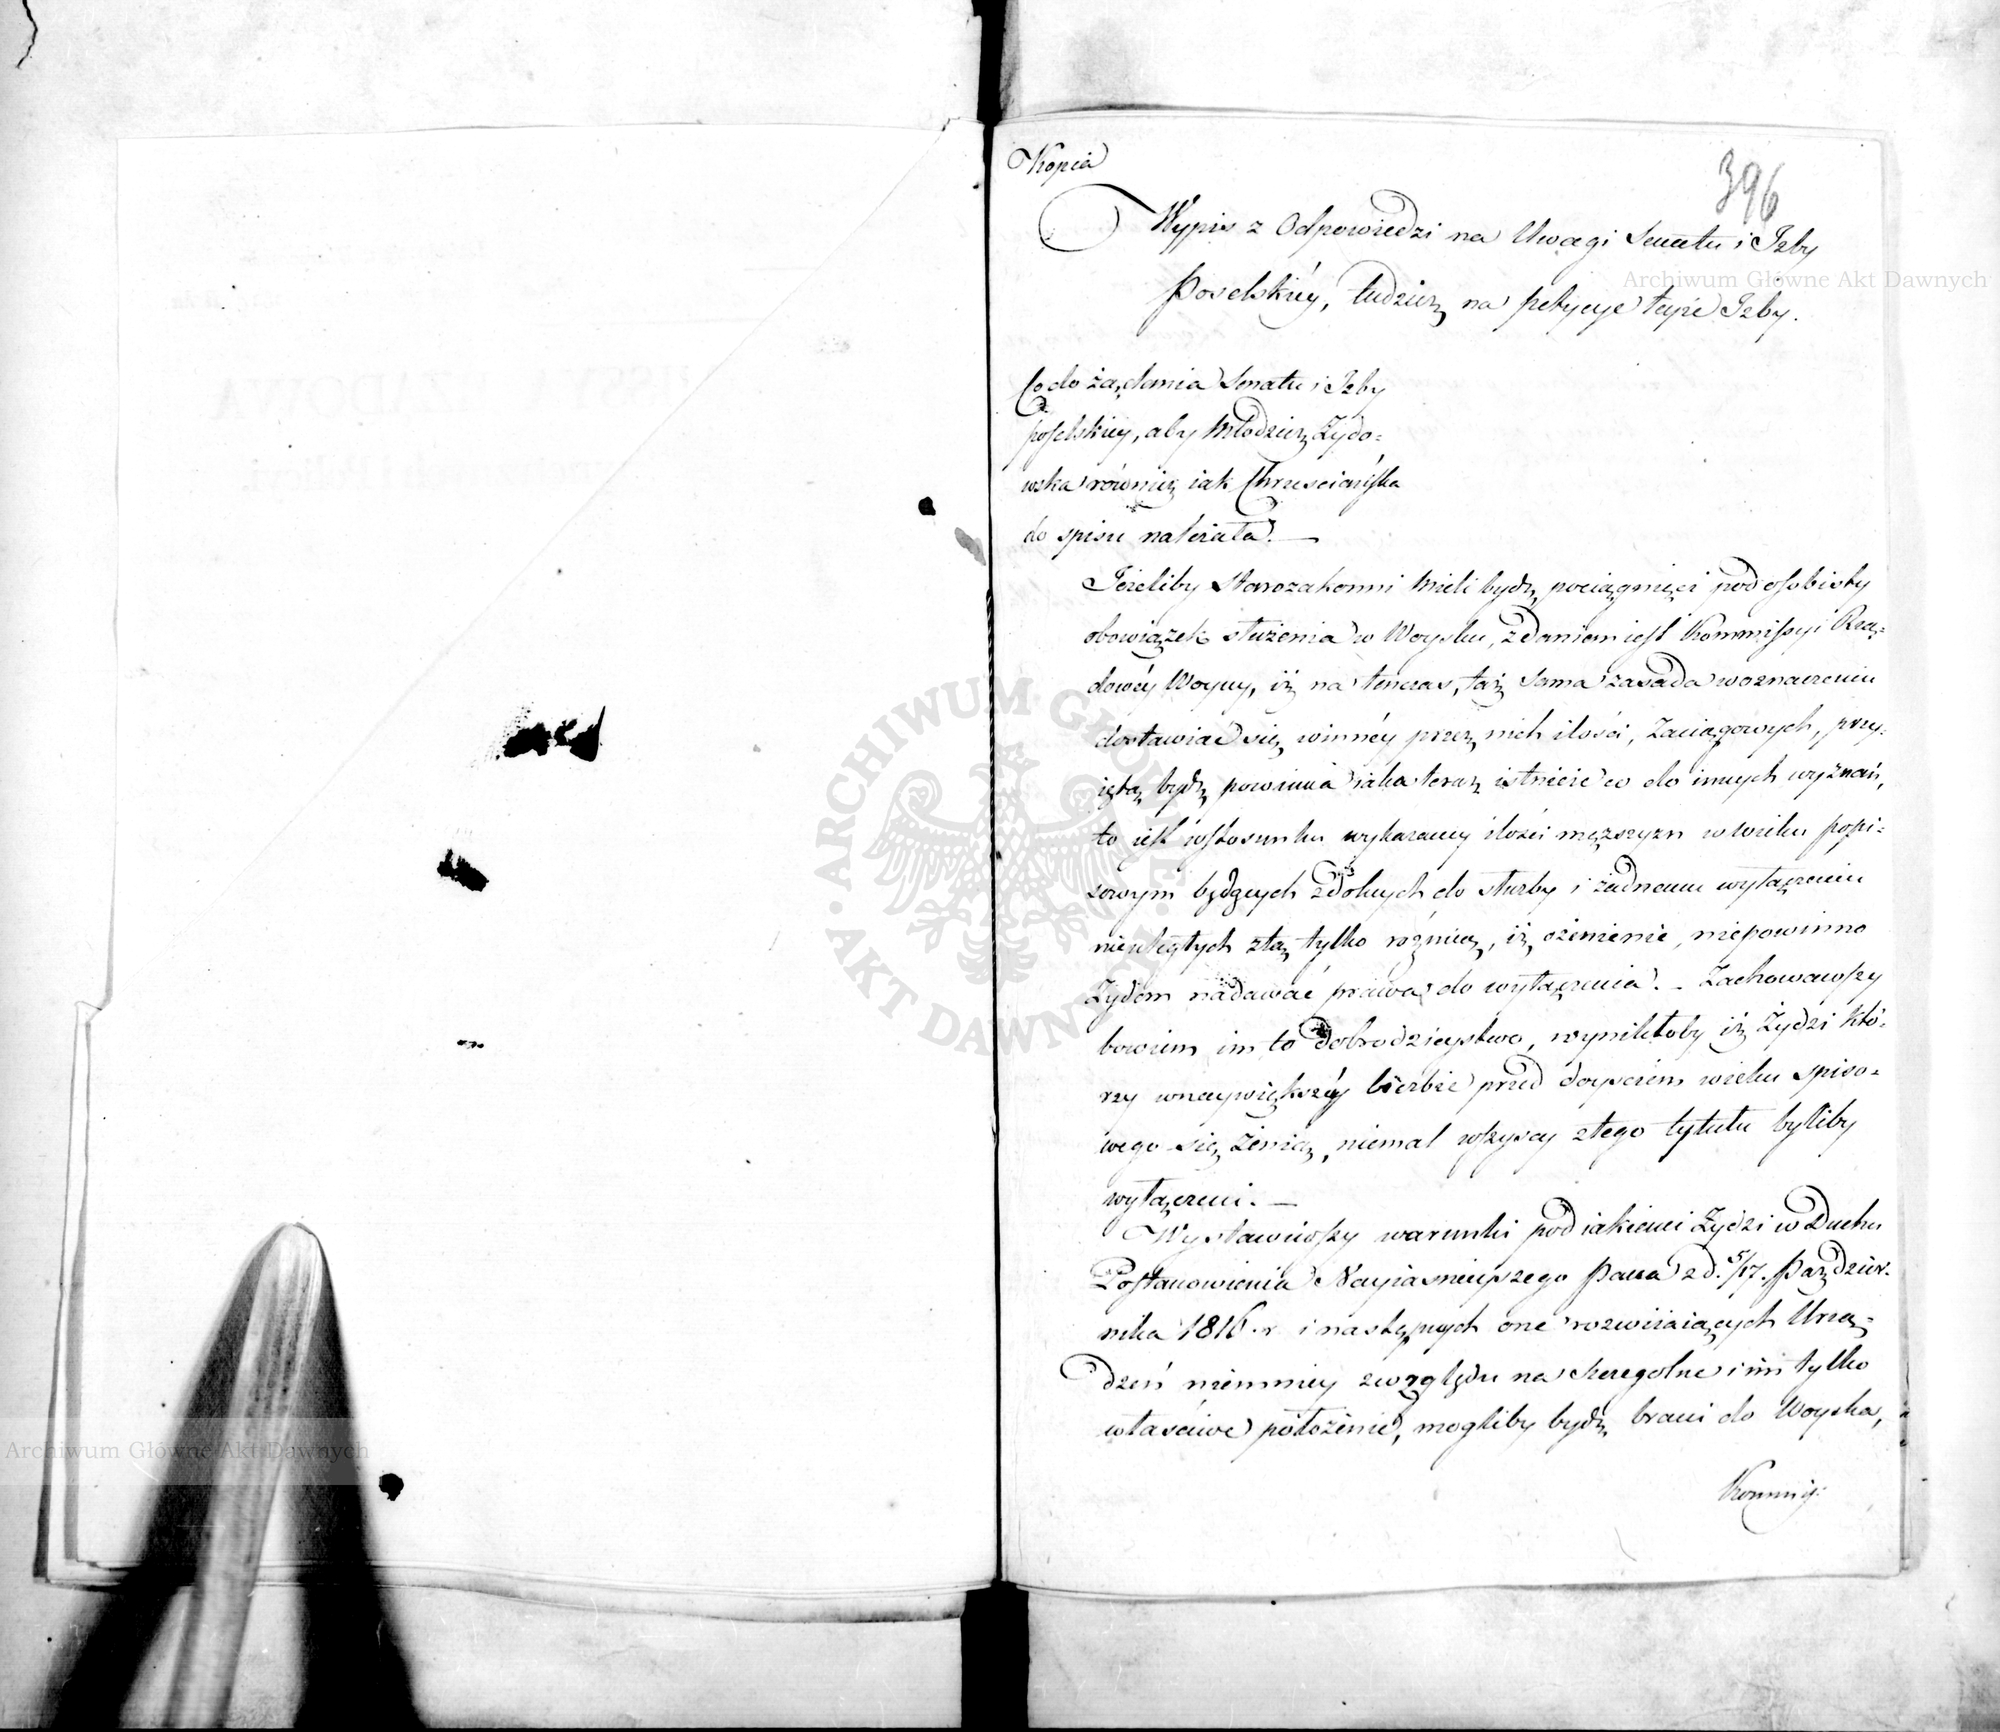 Kopia
396
Wypis z Odpowiedzi na Uwagi Senatu i Izby
Poselskiéy, tudzież na petycye teyże Izby.
Co do żądania Senatu i Izby
poselskiey, aby Młodzież Żydo-
wska równie iak Chrześciańska
do spisu należała. —
Jeżeliby Starozakonni mieli bydź pociągnięci pod osobisty
obowiązek służenia w Woysku, zdaniem iest Kommissyi Rzą-
dowéy Woyny, iż na tenczas, taż sama zasada w oznaczeniu
dostawiać się winnéy przez nich ilości, Zaciągowych, przy-
iętą bydź powinna iaka teraz istnieie co do innych wyznań,
to iest w stosunku wykazaney ilości męzczyzn w wieku popi-
sowym będących zdolnych do służby i żadnemu wyłączeniu
nieuległych z tą tylko róznicą, iż ożenienie, niepowinno
Żydom nadawać prawa do wyłączenia. - Zachowawszy
bowiem im to dobrodzieystwo, wynikłoby iż Żydzi któ-
rzy w naywiększéy liczbie przed doyściem wieku spiso-
wego się żenią, niemal wszyscy z tego tytułu byliby
wyłączeni. —
Wystawiwszy warunki pod iakiemi Żydzi w Duchu
Postanowienia Nayiasnieyszego Pana z d. 5/17. Paździer-
nika 1816. r i następnych one rozwiiaiących Urzą-
dzeń niemniey z względu na szczegolne i im tylko
właściwe położenie, mogliby bydź brani do Woyska,
Kommiss:
Archiwum Główne Akt Dawnych
ARCHIWUM GŁÓWNE AKT DAWNYCH
Archiwum Główne Akt Dawnych